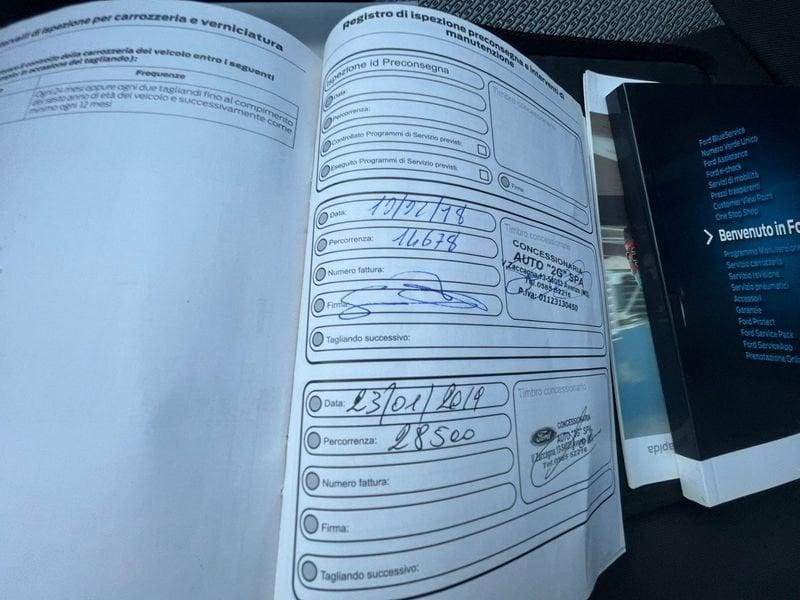 ervalli di ispezione per carrozzeria e verniciatura
il controllo della carrozzeria del veicolo entro i seguenti
in occasione del tagliando):
Frequenze
Ogni 24 mesi oppure ogni due tagliandi fino al compimento
del sesto anno di età del veicolo e successivamente come
minimo ogni 12 mesi
Registro di ispezione preconsegna e interventi di
manutenzione
Ispezione id Preconsegna
Data:
Percorrenza:
Controllato Programmi di Servizio previsti:
Eseguito Programmi di Servizio previsti:
Timbro concessionario
Firma
Data:
Percorrenza: 14678
Numero fattura:
Firma:
Tagliando successivo:
Timbro concessionario
CONCESSIONARIA
AUTO "2G" SPA
V. Zaccagna, 13-54033
Tel. 0585 52216
P.iva: 01123130450
Data: 23/01/2019
Percorrenza: 28500
Numero fattura:
Firma:
Tagliando successivo:
Timbro concessionario
Ford
CONCESSIONARIA
AUTO "2G" SPA
V. Zaccagna, 13-54033
Tel. 0585 52216
Ford BlueService
Numero Verde Unico
Ford Assistance
Ford e-check
Servizi di mobilità
Prezzi trasparenti
Customer View Point
One Stop Shop
Benvenuto in Fo
Programma Manutenzione
Servizio carrozzeria
Servizio revisione
Servizio pneumatici
Accessori
Garanzie
Ford Protect
Ford Service Pack
Ford ServiceApp
Prenotazione Onli
rapida